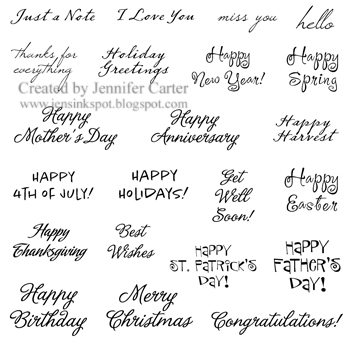 Just a Note
I Love You
miss you
hello
Thanks for
everything
Holiday
Greetings
Happy
New Year!
Happy
Spring
Created by Jennifer Carter
www.jensinkspot.blogspot.com
Happy
Mother's Day
Happy
Anniversary
Happy
Harvest
HAPPY
4TH OF JULY!
HAPPY
HOLIDAYS!
Get
Well
Soon!
Happy
Easter
Happy
Thanksgiving
Best
Wishes
HAPPY
ST. PATRICK'S
DAY!
HAPPY
FATHER'S
DAY!
Happy
Birthday
Merry
Christmas
Congratulations!